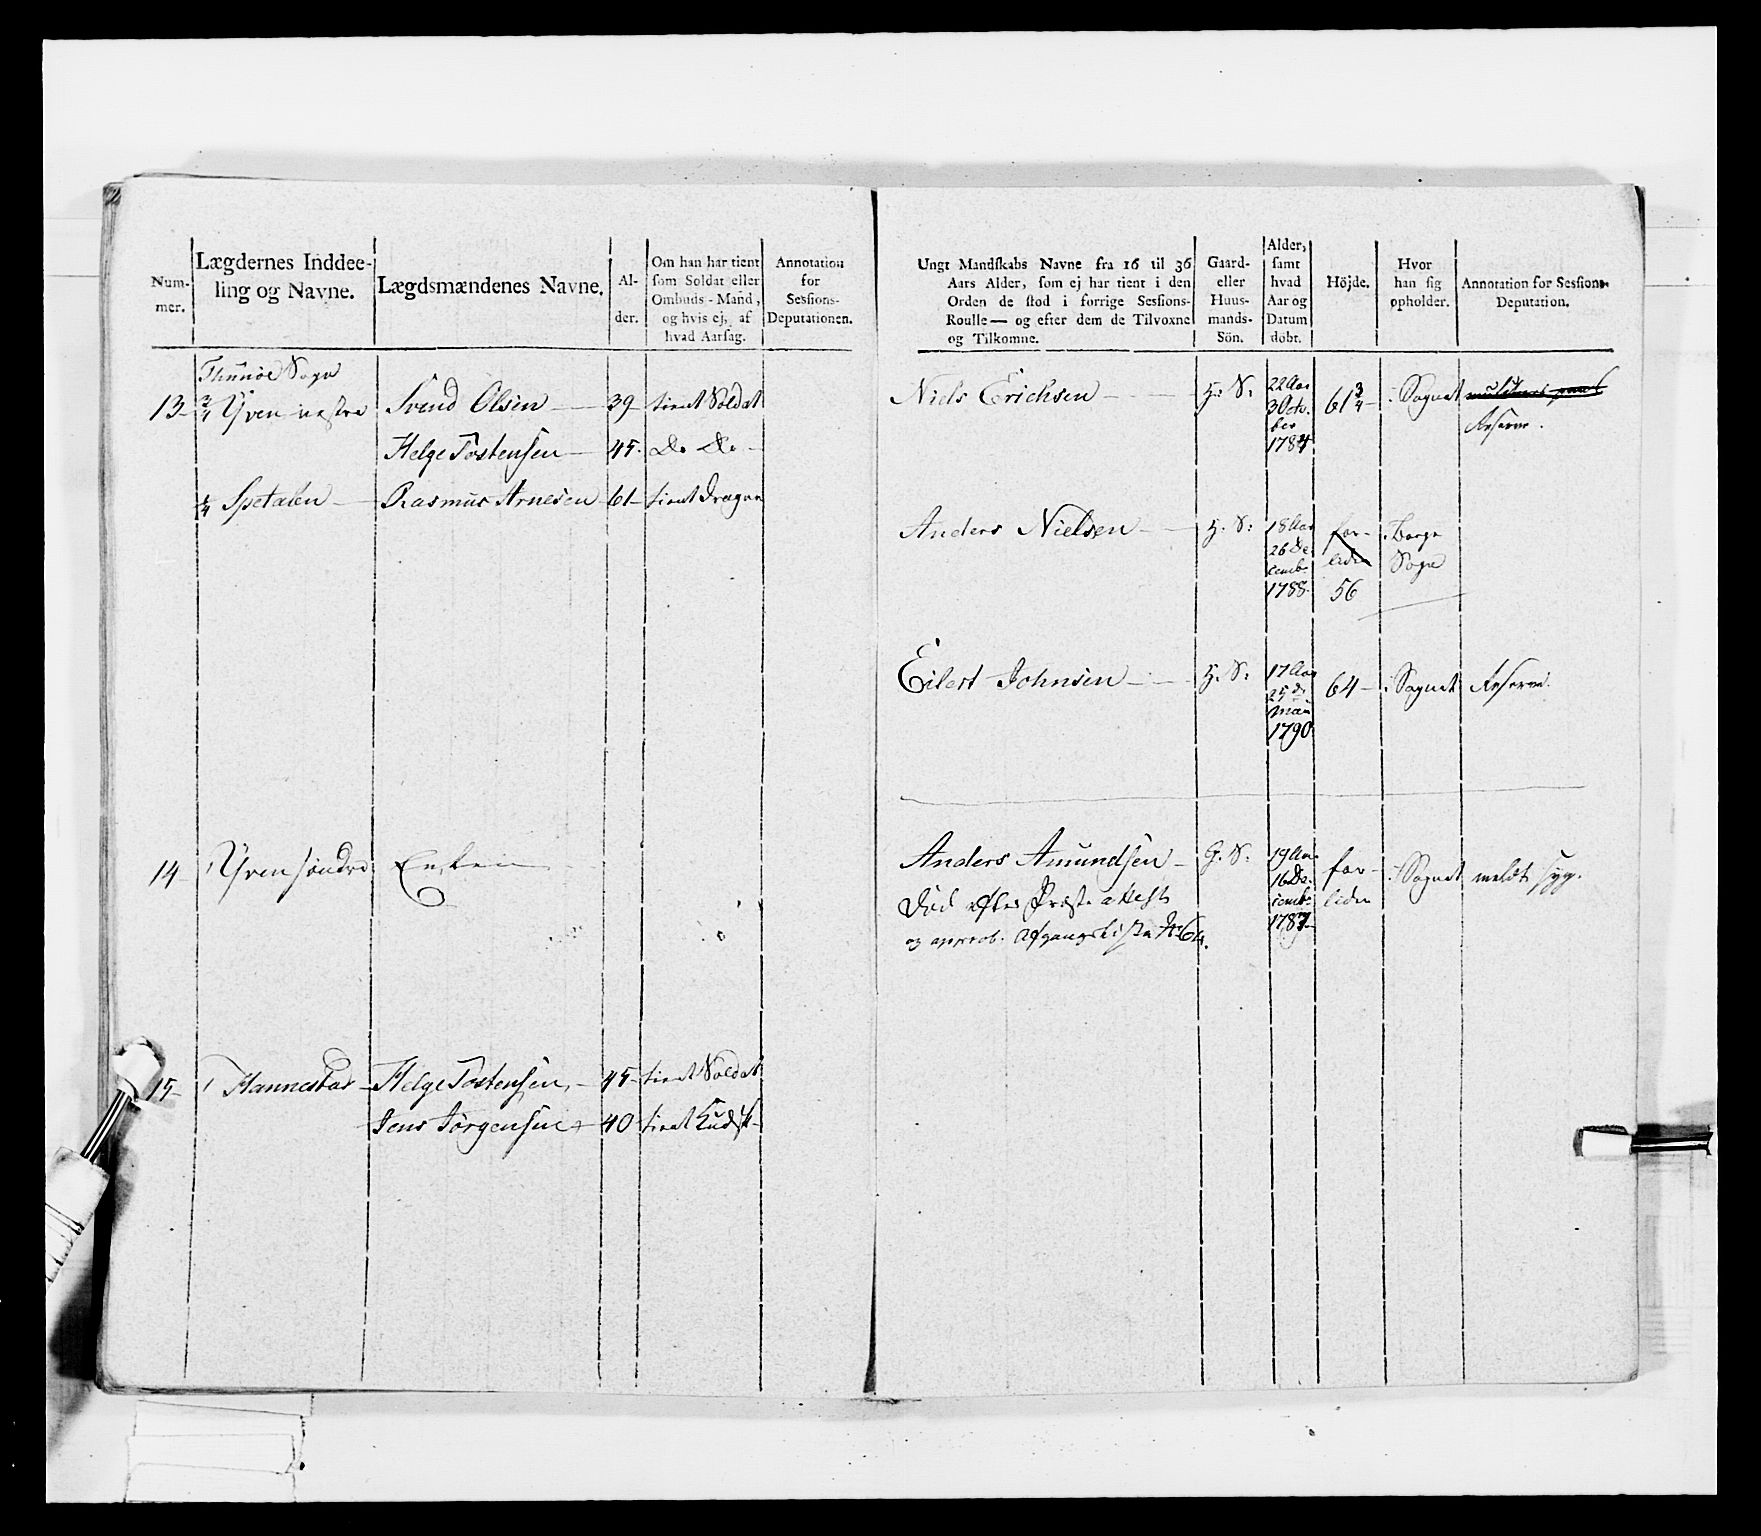 Num-
mer.
Lægdernes Inddee-
ling og Navne.
Lægdsmændenes Navne.
Al-
der.
Om han har tient
som Soldat eller
Ombuds-Mand,
og hvis ej, af
hvad Aarsag.
Annotation
for
Sessions-
Deputationen.
Thunöe Sogn
13 3/4 Yven vestre Svend Olsen 39 tient Soldat
Helge Tostensen 45. Do Do
1/4 Spetalen Rasmus Arnesen 61 tient Dragon
14 1 Yven söndre Enken
15 1 Hannestad Helge Tostensen 45 tient Soldat
Jens Jörgensen 40 tient Kudsk
Ungt Mandskabs Navne fra 16 til 36
Aars Alder, som ej har tient i den
Orden de stod i forrige Sessions-
Roulle — og efter dem de Tilvoxne
og Tilkomne.
Gaard-
eller
Huus-
mands-
Sön.
Alder,
samt
hvad
Aar og
Datum
döbt.
Höjde.
Hvor
han sig
opholder.
Annotation for Sessions-
Deputation.
Niels Erichsen H: S: 22 Aar
3 Octo-
ber
1784 61 3/4 i Sognet
Reserve.
Anders Nielsen H: S: 18 Aar
26 De
cemb.
1788. for-
liden
56 i Borge
Sogn
Eilert Johnsen H: S: 17 Aar
25 de
Maii
1790 64 i Sognet Reserve.
Anders Amundsen G: S: 19 Aar
16 De-
cemb.
1787 for-
liden i Sognet meldt syg.
Död efter Præste Attest
og approb. Afgangsliste No 64.